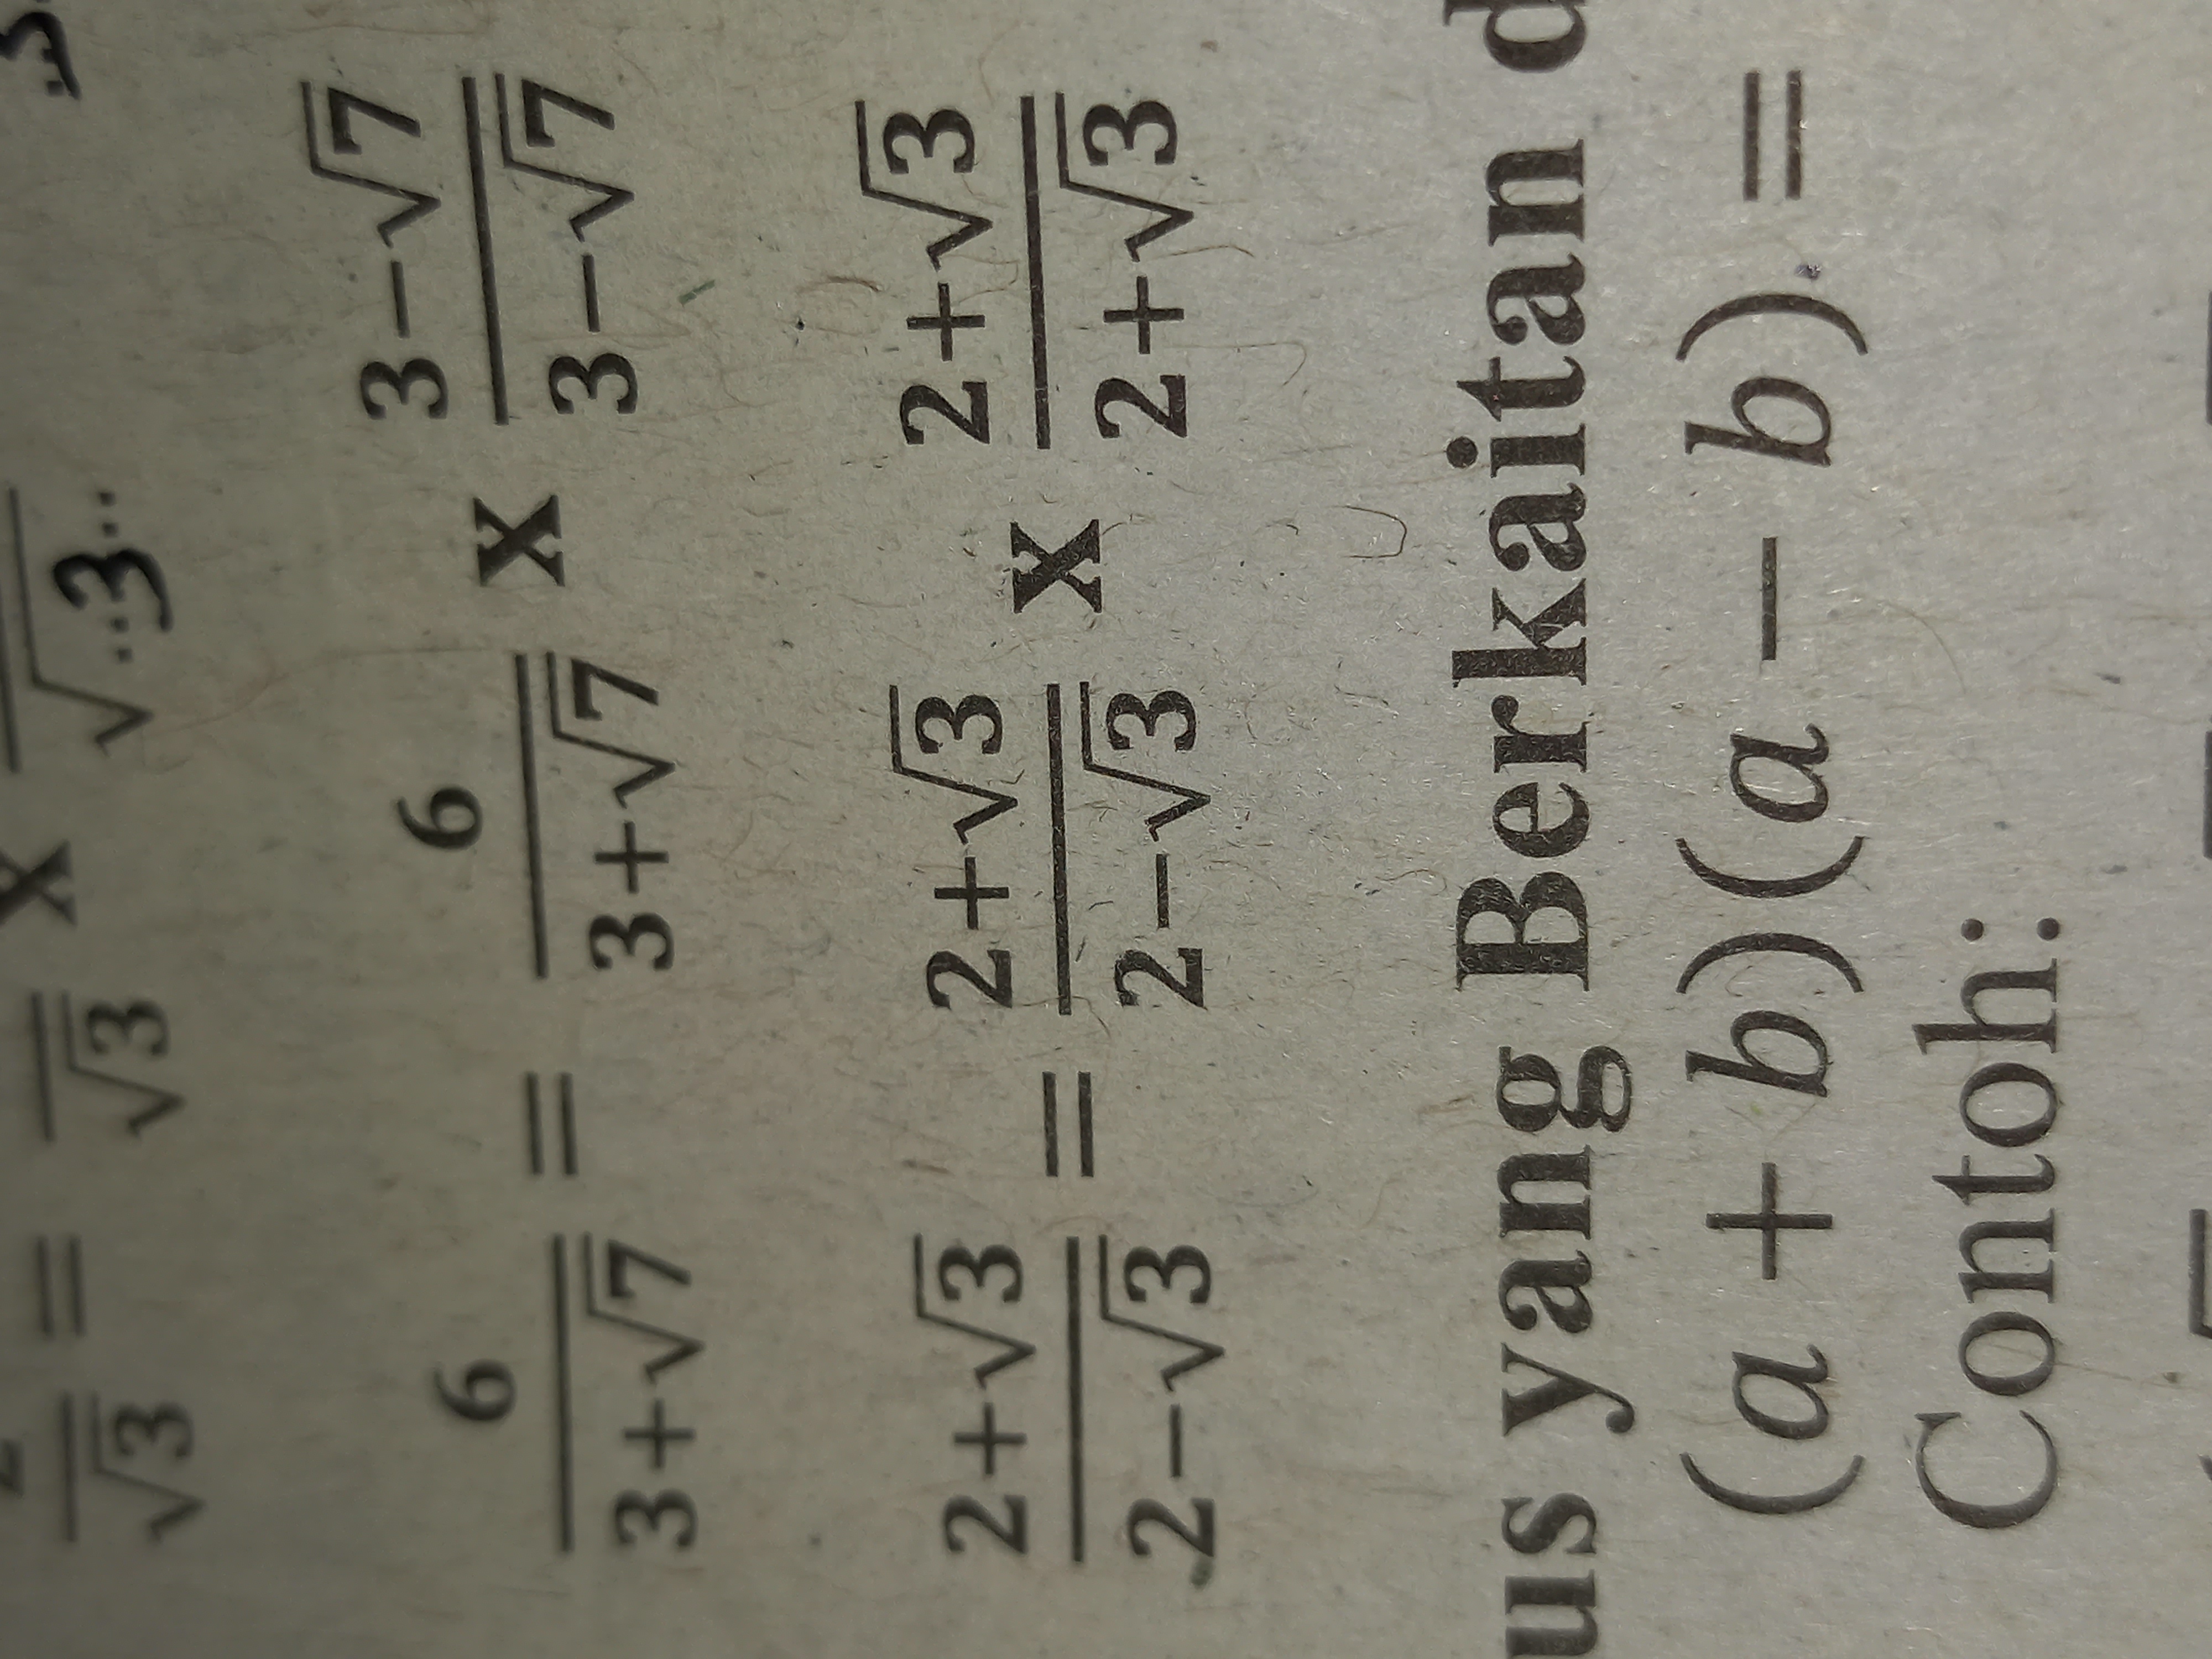 2/√3 = /√3 x /√..3..
6/(3+√7) = 6/(3+√7) x (3−√7)/(3−√7)
(2+√3)/(2−√3) = (2+√3)/(2−√3) x (2+√3)/(2+√3)
us yang Berkaitan d
(a + b)(a − b) =
Contoh: